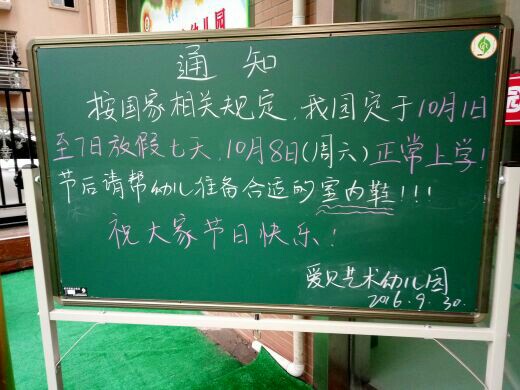 幼儿园
通知
按国家相关规定,我园定于10月1日
至7日放假七天,10月8日(周六)正常上学!
节后请帮幼儿准备合适的室内鞋!!!
祝大家节日快乐!
爱贝艺术幼儿园
2016.9.30.
园